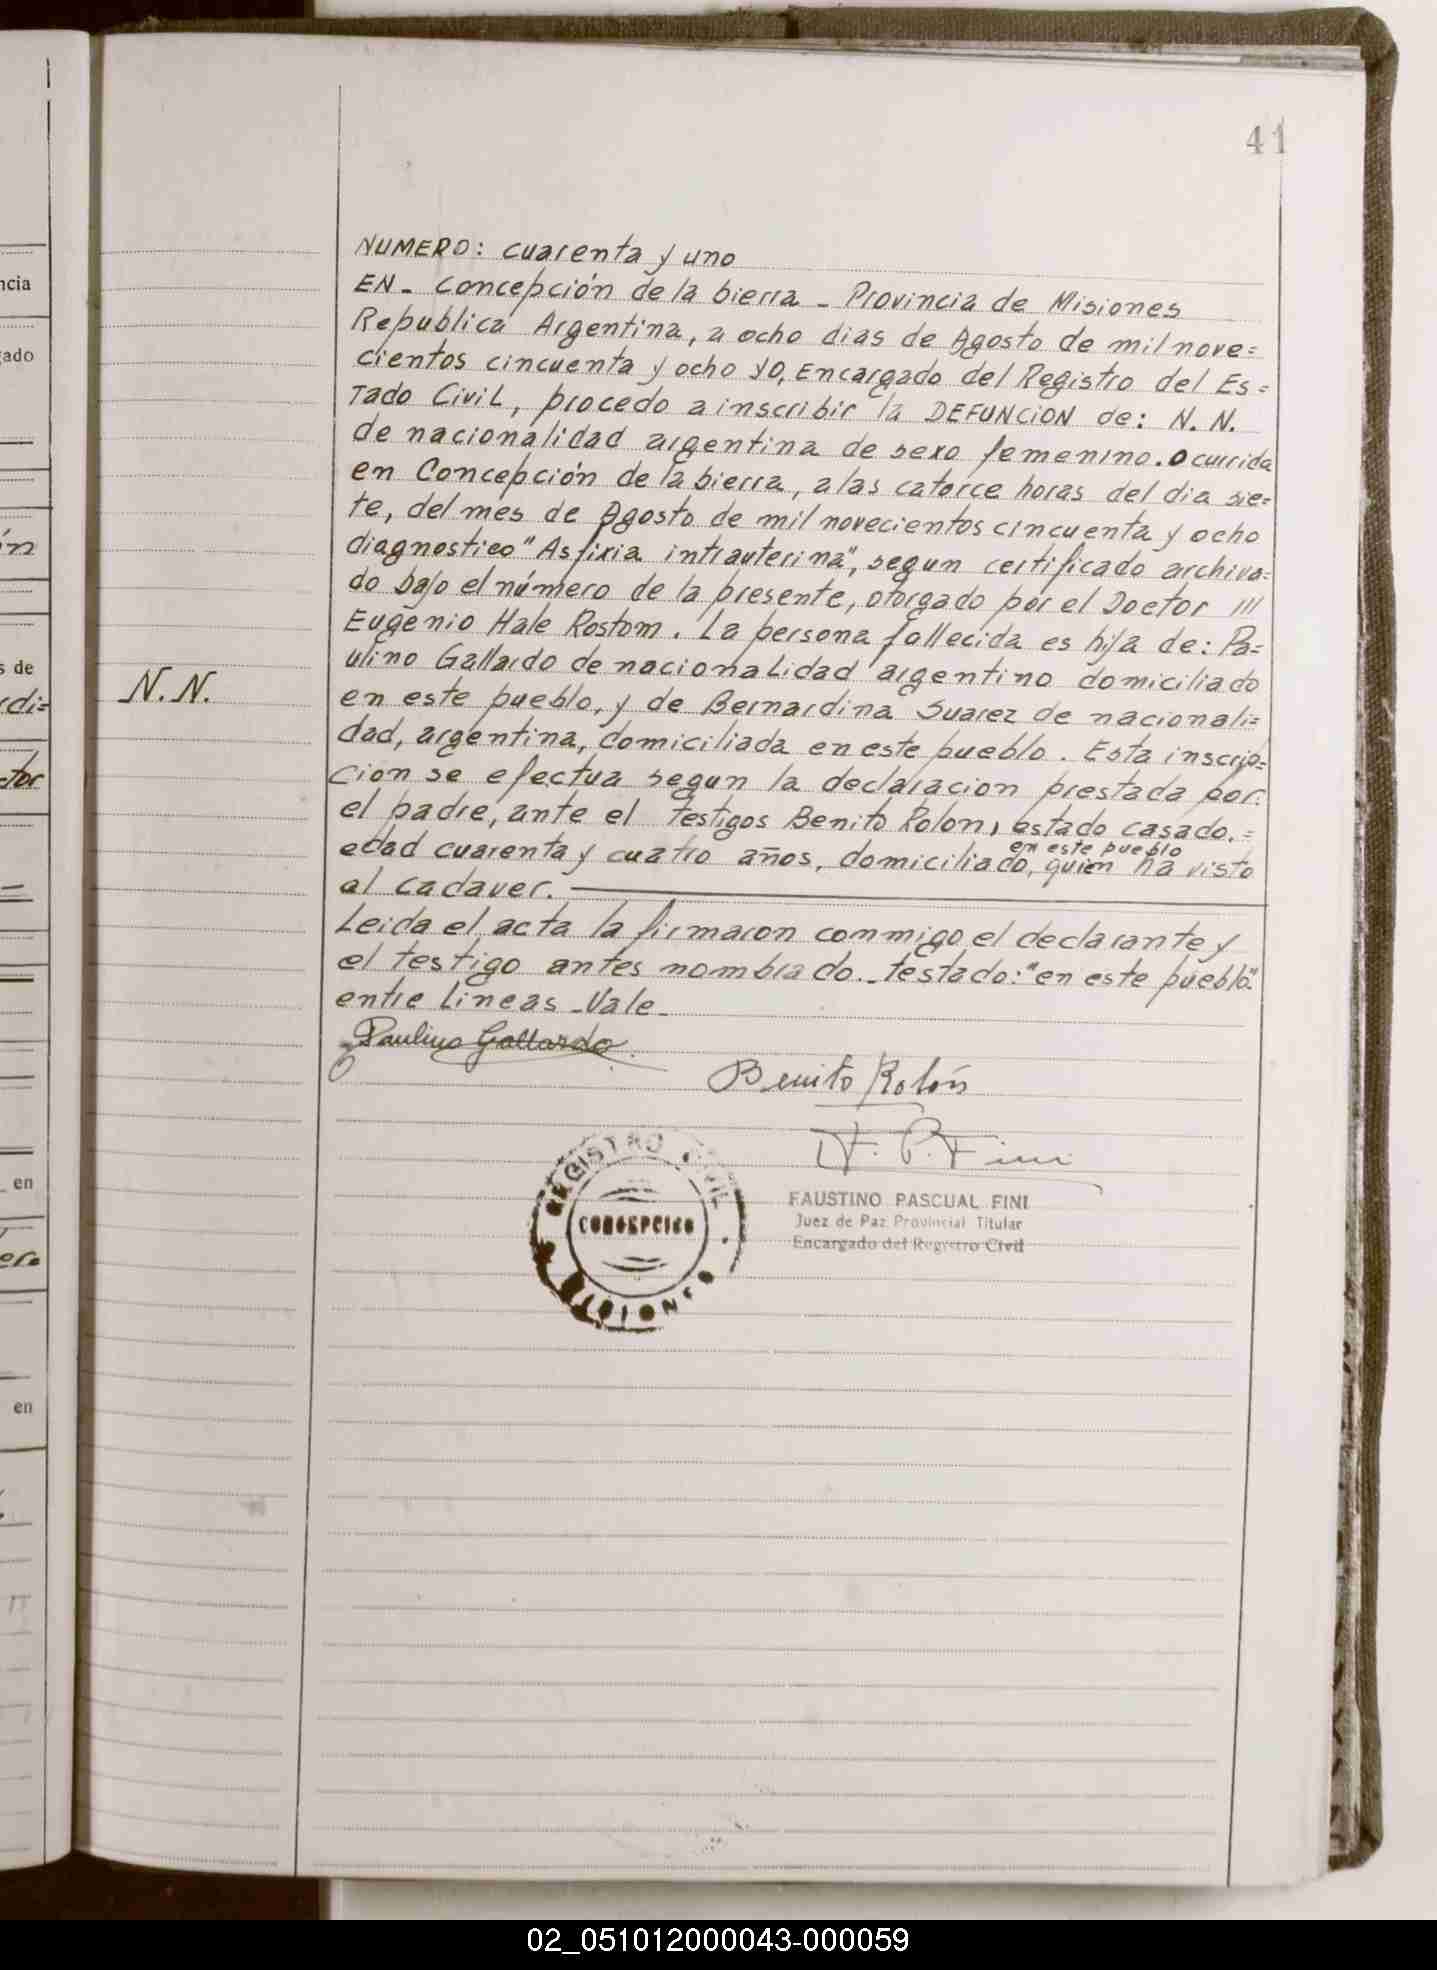 41
NUMERO: cuarenta y uno
EN - Concepción de la Sierra - Provincia de Misiones
Republica Argentina, a ocho dias de Agosto de mil nove=
cientos cincuenta y ocho YO, Encargado del Registro del Es=
tado Civil, procedo a inscribir la DEFUNCION de: N. N.
de nacionalidad argentina de sexo femenino. Ocurrida
en Concepción de la Sierra, a las catorce horas del dia sie=
te, del mes de Agosto de mil novecientos cincuenta y ocho
diagnostico "Asfixia intrauterina", segun certificado archiva=
do bajo el número de la presente, otorgado por el Doctor ///
Eugenio Hale Rostom. La persona fallecida es hija de: Pa=
ulino Gallardo de nacionalidad argentino domiciliado
N.N.
en este pueblo, y de Bernardina Suarez de nacionali=
dad, argentina, domiciliada en este pueblo. Esta inscrip=
cion se efectua segun la declaracion prestada por:
el padre, ante el testigos Benito Rolon, estado casado.=
en este pueblo
edad cuarenta y cuatro años, domiciliado, quien ha visto
al cadaver.
Leida el acta la firmaron conmigo el declarante y
el testigo antes nombrado.- testado: "en este pueblo"
entre Lineas - Vale -
Paulino Gallardo
Benito Rolón
F. P. Fini
REGISTRO CIVIL
CONCEPCION
MISIONES
FAUSTINO PASCUAL FINI
Juez de Paz Provincial Titular
Encargado del Registro Civil
ncia
gado
ón
s de
rdi=
ctor
en
en
02_051012000043-000059